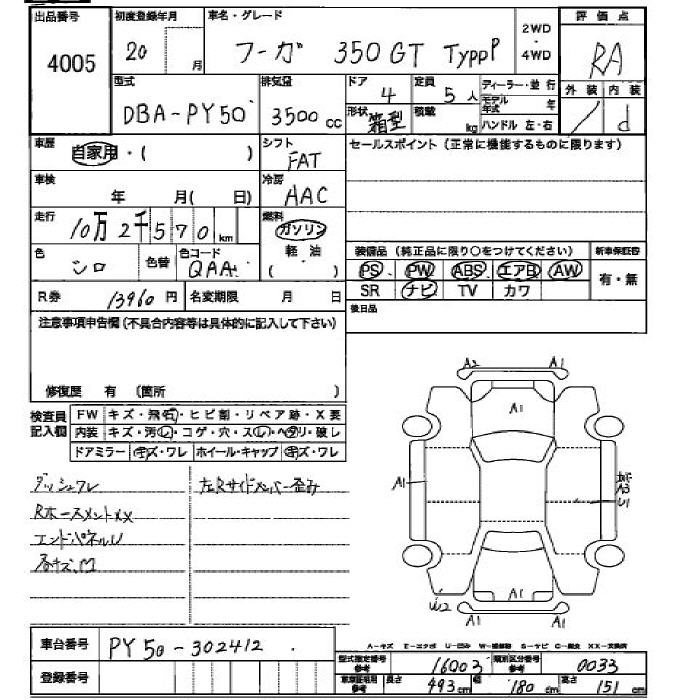 出品番号
4005
初度登録年月
20 月
車名・グレード
フーガ 350GT TYPP P
2WD
・
4WD
評価点
RA
外装 内装
/ d
型式
DBA-PY50
排気量
3500 cc
ドア
4
形状
箱型
定員
5 人
積載
kg
ディーラー・並行
モデル年式 年
ハンドル 左・右
車歴
自家用・( )
シフト
FAT
車検
年 月( 日)
冷房
AAC
走行
10万2千570 km
燃料
ガソリン
軽油
( )
色
シロ
色替
色コード
QAA
R券
13960 円
名変期限 月 日
セールスポイント(正常に機能するものに限ります)
装備品(純正品に限り○をつけてください)
新車保証書
PS PW ABS エアB AW
SR ナビ TV カワ
有・無
後日品
注意事項申告欄(不具合内容等は具体的に記入して下さい)
修復歴 有 (箇所 )
検査員
記入欄
FW キズ・飛石・ヒビ割・リペア跡・X要
内装 キズ・汚レ・コゲ・穴・スレ・ヘタリ・破レ
ドアミラー キズ・ワレ ホイール・キャップ キズ・ワレ
ダッシュフレ
左Rサイドメンバー歪み
RホースメントXX
エンドパネルU
各キズ、凹
A2 A1
A1
A1
A3
U1
A1
W2
A1
A1
A-キズ E-エクボ U-凹み W-補修跡 S-サビ C-腐食 XX-交換済
車台番号
PY50-302412
登録番号
型式指定番号
参考
16003
類別区分番号
参考
0033
車庫証明用
参考
長さ 493 cm 幅 180 cm 高さ 151 cm